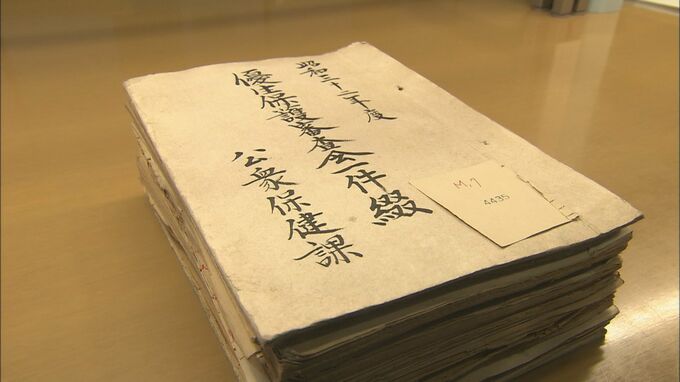 昭和三十二年度
優生保護審査会一件綴
公衆保健課
M,7
4435